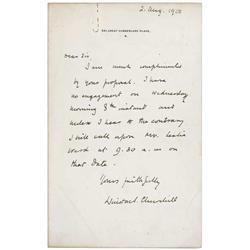 2. Aug. 1900
GREAT CUMBERLAND PLACE,
W.
Dear Sir
I am much complimented
by your proposal. I have
no engagement on Wednesday
morning 8th instant and
unless I hear to the contrary
I will call upon Mr. Leslie
Ward at 9.30 a.m on
that date.
Yours faithfully
Winston S. Churchill